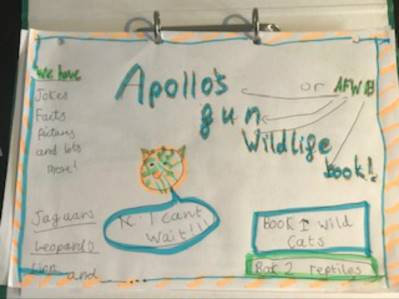 We have
Jokes
Facts
Pictures
and lots
more!
Apollo's
gun
Wildlife
book!
or AFWB
I can't
Wait!!!
Jaguars
Leopards
Lion and ...
Book 1 Wild
Cats
Book 2 reptiles